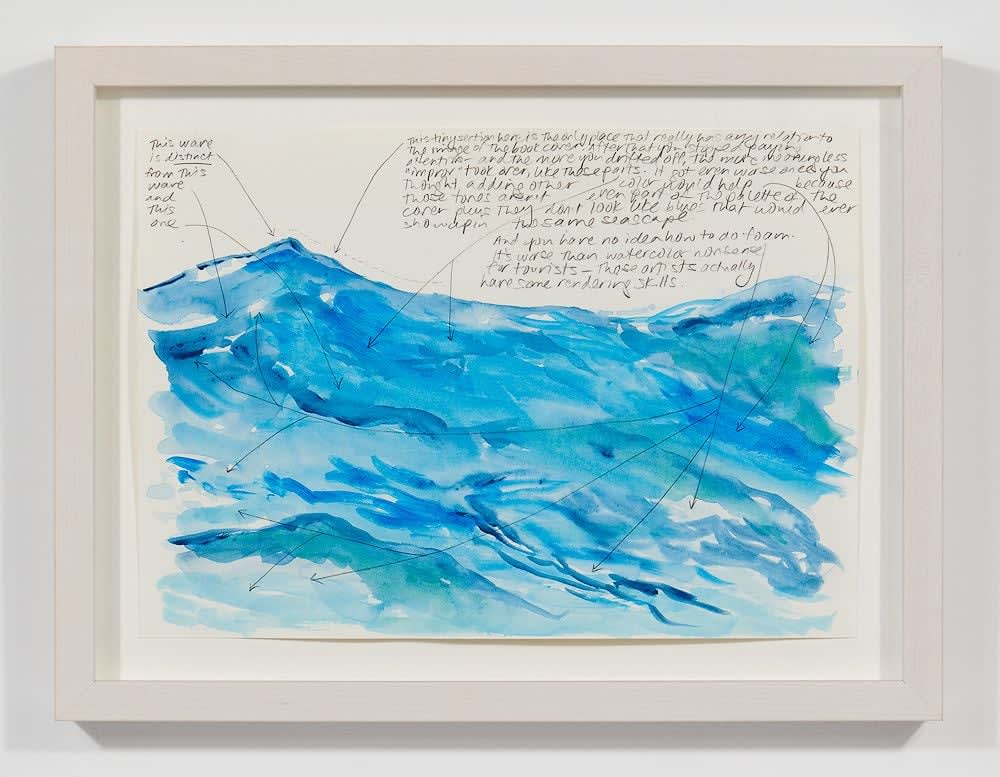 This wave
is distinct
from this
wave
and
this
one
This tiny section here is the only place that really has any relation to
the image of the book cover. After that you stopped paying
attention and the more you drifted off, the more meaningless
"improv" took over, like those parts. It got even worse once you
thought adding other color would help because
those tones aren't even part of the palette of the
cover plus they don't look like blues that would ever
show up in the same seascape
And you have no idea how to do foam.
It's worse than watercolor nonsense
for tourists — those artists actually
have some rendering skills.